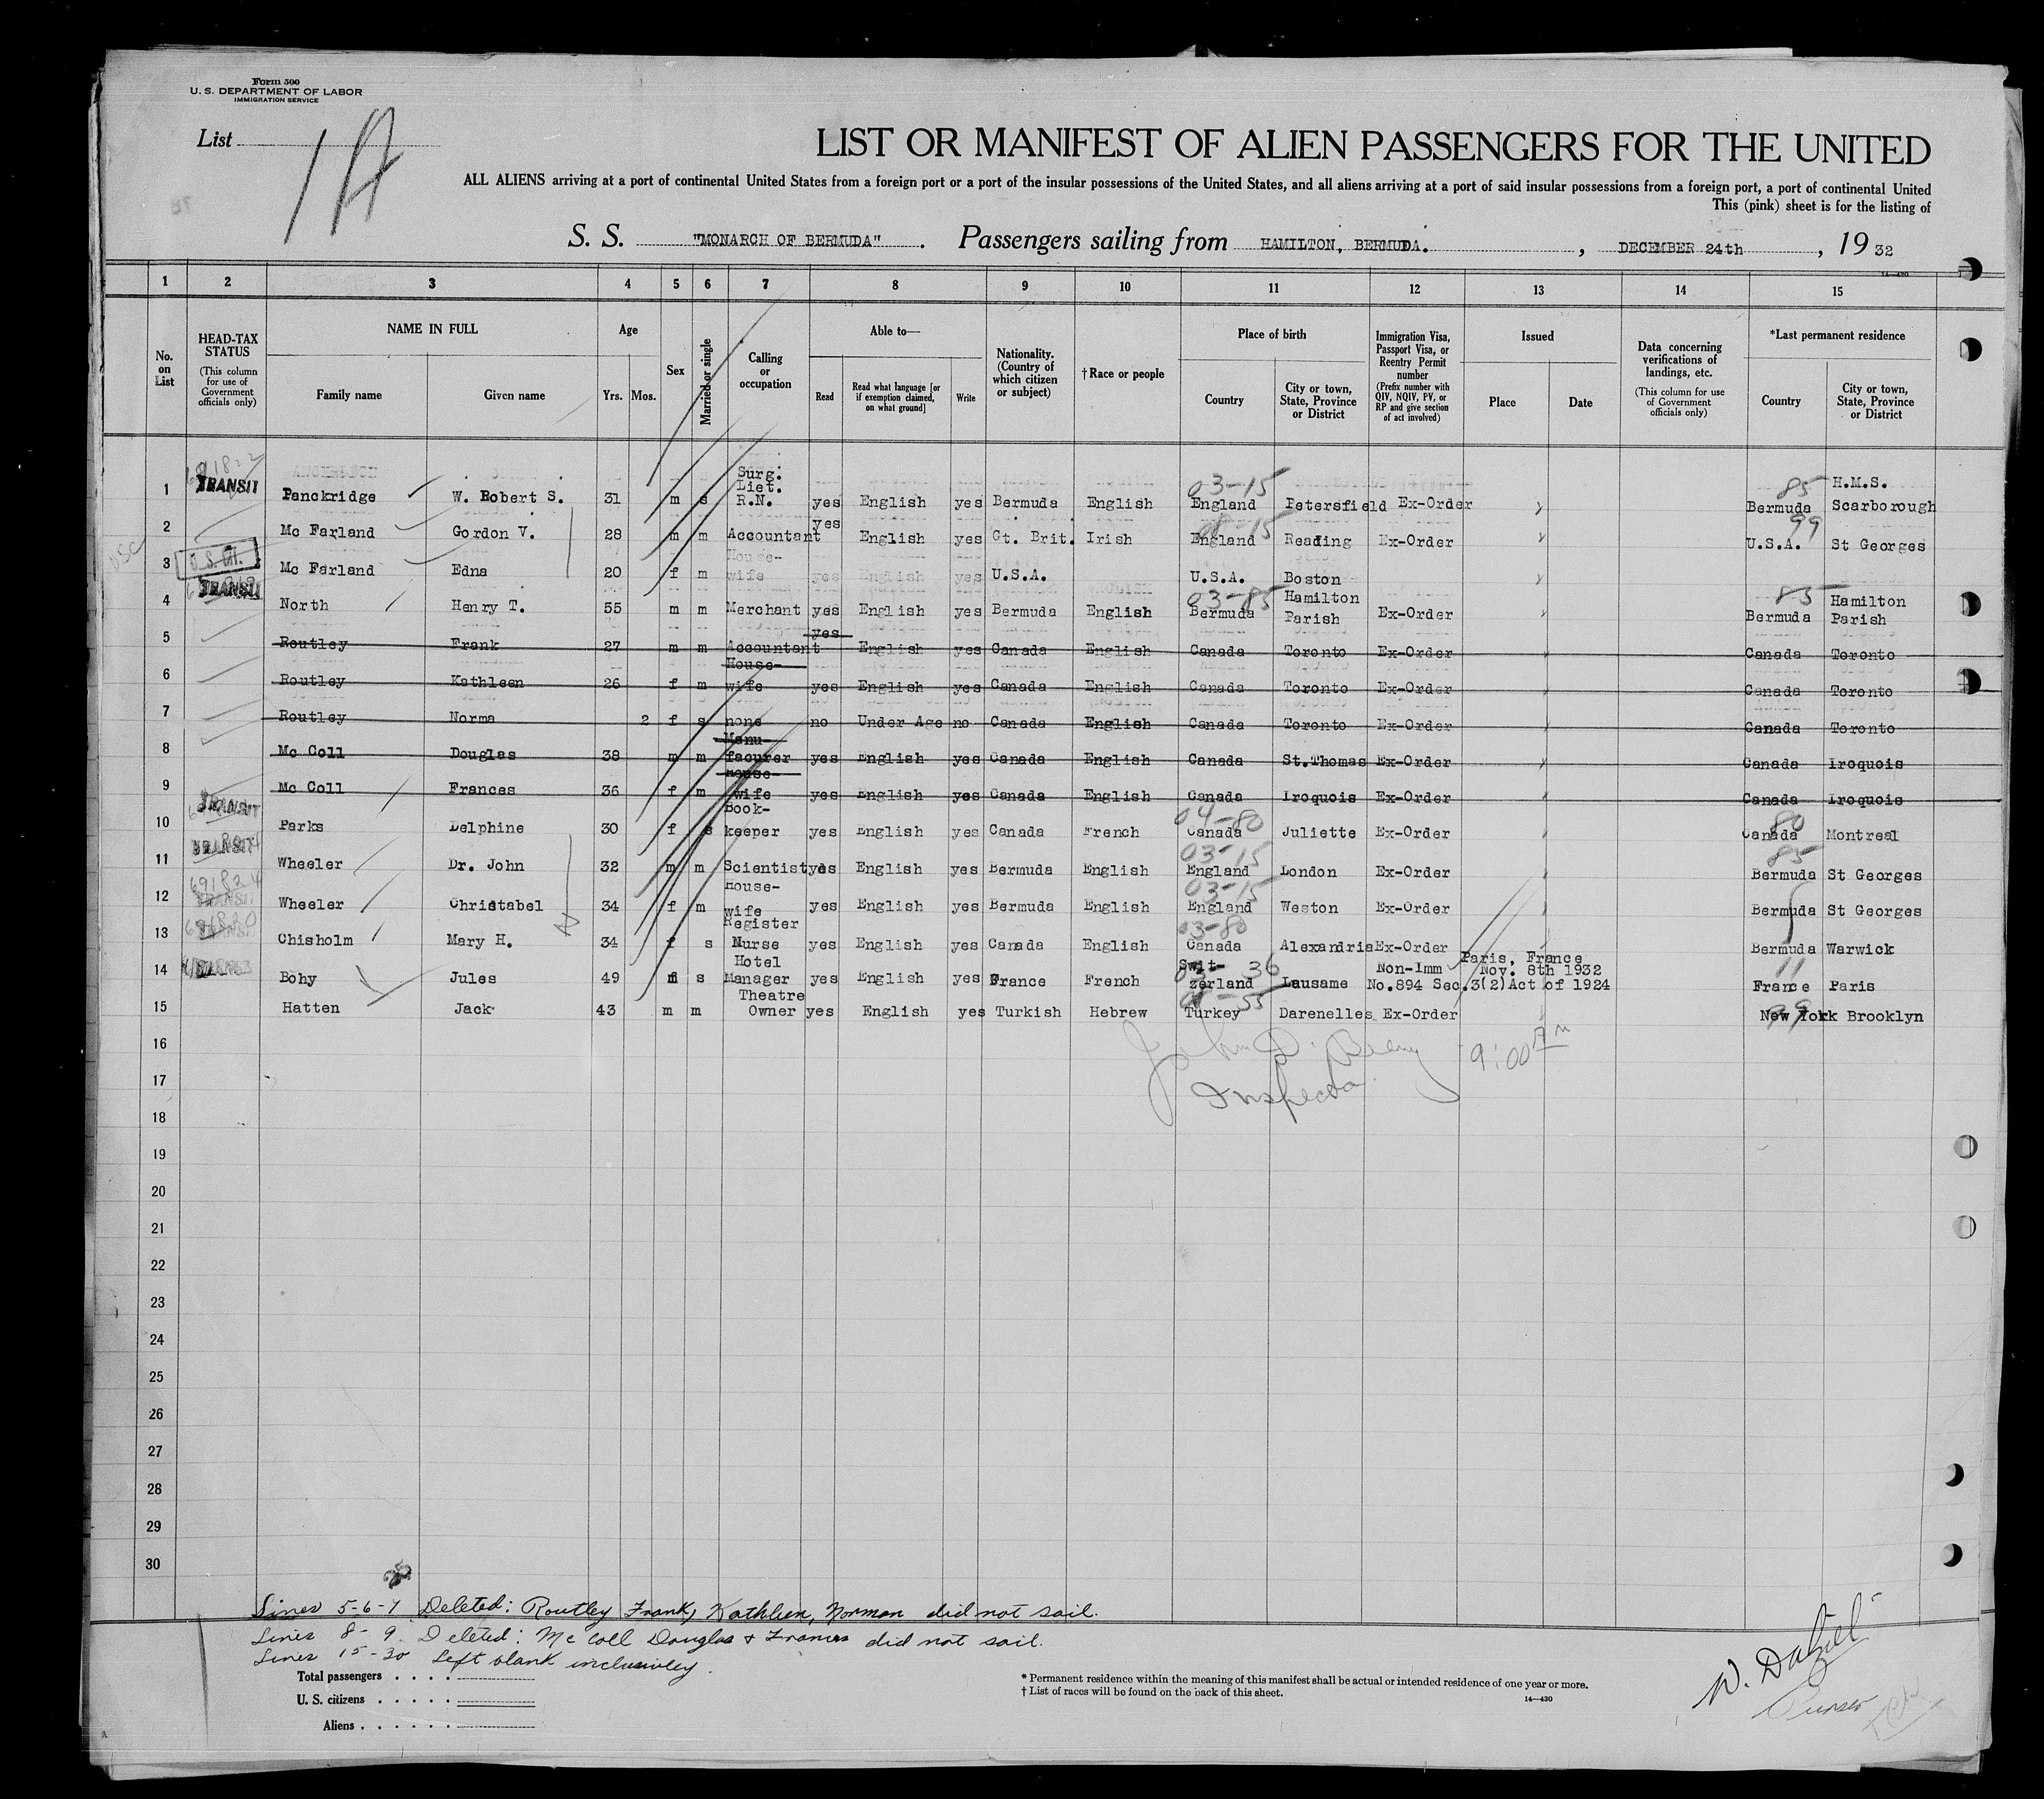 Form 500
U. S. DEPARTMENT OF LABOR
IMMIGRATION SERVICE
List 1A
LIST OR MANIFEST OF ALIEN PASSENGERS FOR THE UNITED
ALL ALIENS arriving at a port of continental United States from a foreign port or a port of the insular possessions of the United States, and all aliens arriving at a port of said insular possessions from a foreign port, a port of continental United
This (pink) sheet is for the listing of
S. S. "MONARCH OF BERMUDA". Passengers sailing from HAMILTON, BERMUDA. , DECEMBER 24th , 19 32
14-430
1 2 3 4 5 6 7 8 9 10 11 12 13 14 15
No. on List
HEAD-TAX STATUS (This column for use of Government officials only)
NAME IN FULL Family name Given name
Age Yrs. Mos.
Sex
Married or single
Calling or occupation
Able to— Read Read what language [or if exemption claimed, on what ground] Write
Nationality. (Country of which citizen or subject)
†Race or people
Place of birth Country City or town, State, Province or District
Immigration Visa, Passport Visa, or Reentry Permit number (Prefix number with QIV, NQIV, PV, or RP and give section of act involved)
Issued Place Date
Data concerning verifications of landings, etc. (This column for use of Government officials only)
*Last permanent residence Country City or town, State, Province or District
1 TRANSIT Panckridge W. Robert S. 31 m s Surg. Liet. R.N. yes English yes Bermuda English 03-15 England Petersfield Ex-Order 85 Bermuda H.M.S. Scarborough
2 Mc Farland Gordon V. 28 m m Accountant yes English yes Gt. Brit. Irish England Reading Ex-Order 99 U.S.A. St Georges
3 Mc Farland Edna 20 f m House-wife yes English yes U.S.A. U.S.A. Boston
4 TRANSIT North Henry T. 55 m m Merchant yes English yes Bermuda English 03-85 Bermuda Hamilton Parish Ex-Order 85 Bermuda Hamilton Parish
5 Routley Frank 27 m m Accountant yes English yes Canada English Canada Toronto Ex-Order Canada Toronto
6 Routley Kathleen 26 f m House-wife yes English yes Canada English Canada Toronto Ex-Order Canada Toronto
7 Routley Norma 2 f s none no Under Age no Canada English Canada Toronto Ex-Order Canada Toronto
8 Mc Coll Douglas 38 m m Manu-facurer yes English yes Canada English Canada St.Thomas Ex-Order Canada Iroquois
9 Mc Coll Frances 36 f m House-wife yes English yes Canada English Canada Iroquois Ex-Order Canada Iroquois
10 TRANSIT Parks Delphine 30 f s Book-keeper yes English yes Canada French 04-80 Canada Juliette Ex-Order 80 Canada Montreal
11 TRANSIT Wheeler Dr. John 32 m m Scientist yes English yes Bermuda English 03-15 England London Ex-Order 85 Bermuda St Georges
12 691824 TRANSIT Wheeler Christabel 34 f m House-wife yes English yes Bermuda English 03-15 England Weston Ex-Order Bermuda St Georges
13 691820 TRANSIT Chisholm Mary H. 34 f s Register Nurse yes English yes Canada English 03-80 Canada Alexandria Ex-Order Bermuda Warwick
14 Bohy Jules 49 m s Hotel Manager yes English yes France French 36 Swit-zerland Lausame Non-Imm No.894 Sec.3(2)Act of 1924 Paris, France Nov. 8th 1932 11 France Paris
15 Hatten Jack 43 m m Theatre Owner yes English yes Turkish Hebrew 55 Turkey Darenelles Ex-Order New York Brooklyn
16 John D. 9:00 AM
17 Inspector
18
19
20
21
22
23
24
25
26
27
28
29
30
Lines 5-6-7 Deleted: Routley Frank, Kathleen, Norman did not sail.
Lines 8-9 Deleted: Mc Coll Douglas & Frances did not sail.
Lines 15-30 Left blank inclusivley.
Total passengers
U. S. citizens
Aliens
* Permanent residence within the meaning of this manifest shall be actual or intended residence of one year or more.
† List of races will be found on the back of this sheet.
14—430
W. Dalziel
Purser